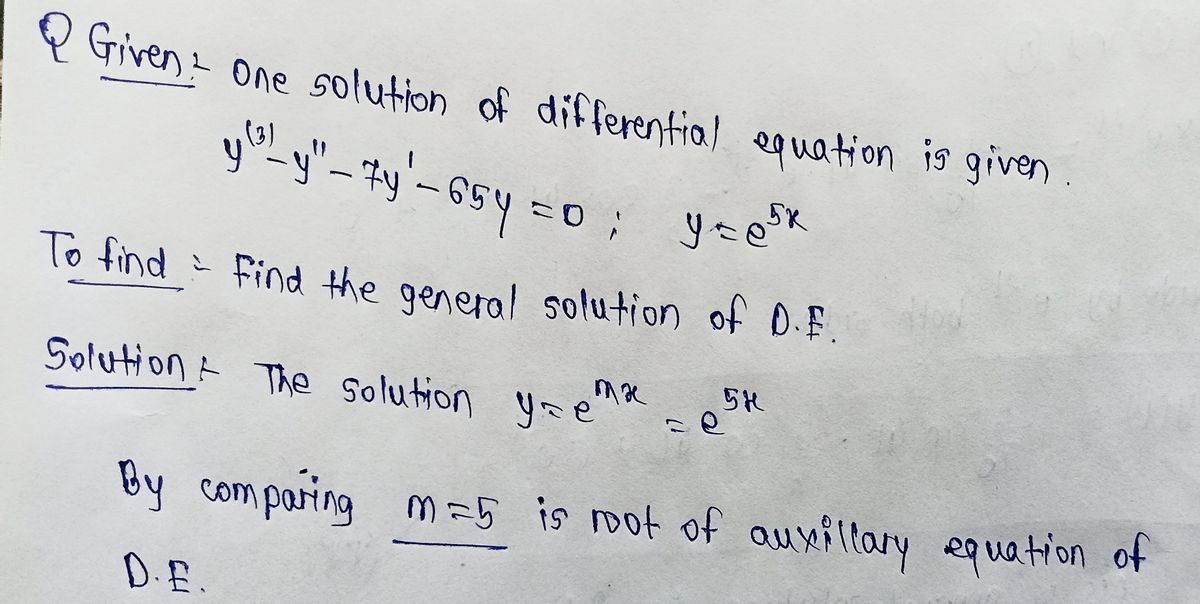 Q Given :- One solution of differential equation is given.
y⁽³⁾ - y'' - 7y' - 65y = 0 ; y = e⁵ˣ
To find :- Find the general solution of D.E.
Solution :- The solution y = eᵐˣ = e⁵ˣ
By comparing m = 5 is root of auxillary equation of
D.E.